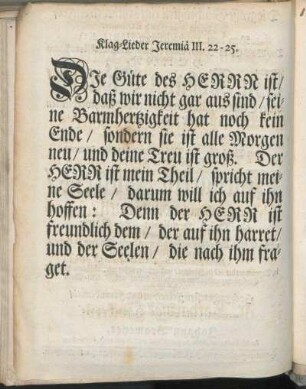 Klag-Lieder Jeremiä III. 22-25.
DJe Güte des HERRN ist/
daß wir nicht gar aus sind/ sei
ne Barmhertzigkeit hat noch kein
Ende/ sondern sie ist alle Morgen
neu/ und deine Treu ist groß. Der
HERR ist mein Theil/ spricht mei
ne Seele/ darum will ich auf ihn
hoffen: Denn der HERR ist
freundlich dem/ der auf ihn harret/
und der Seelen/ die nach ihm fra
get.